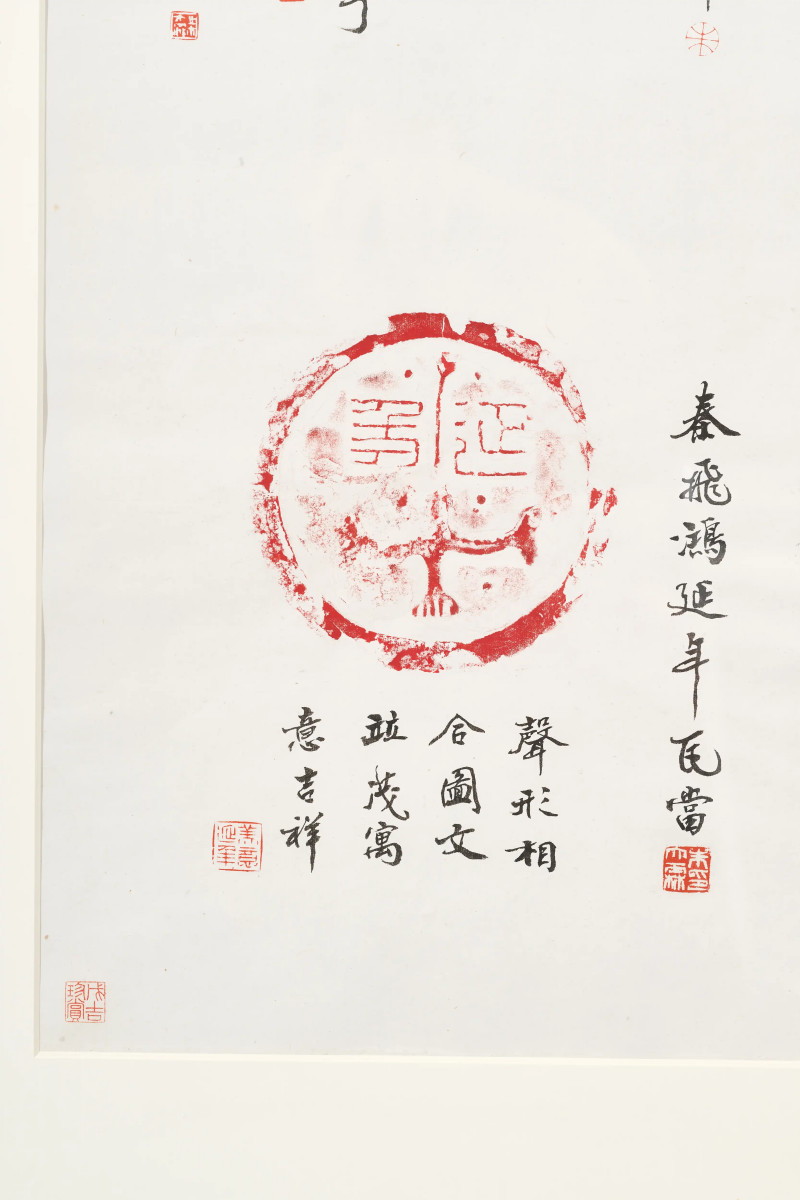 秦飛鴻延年瓦當
延年
聲形相
合圖文
並茂寓
意吉祥
美意延年